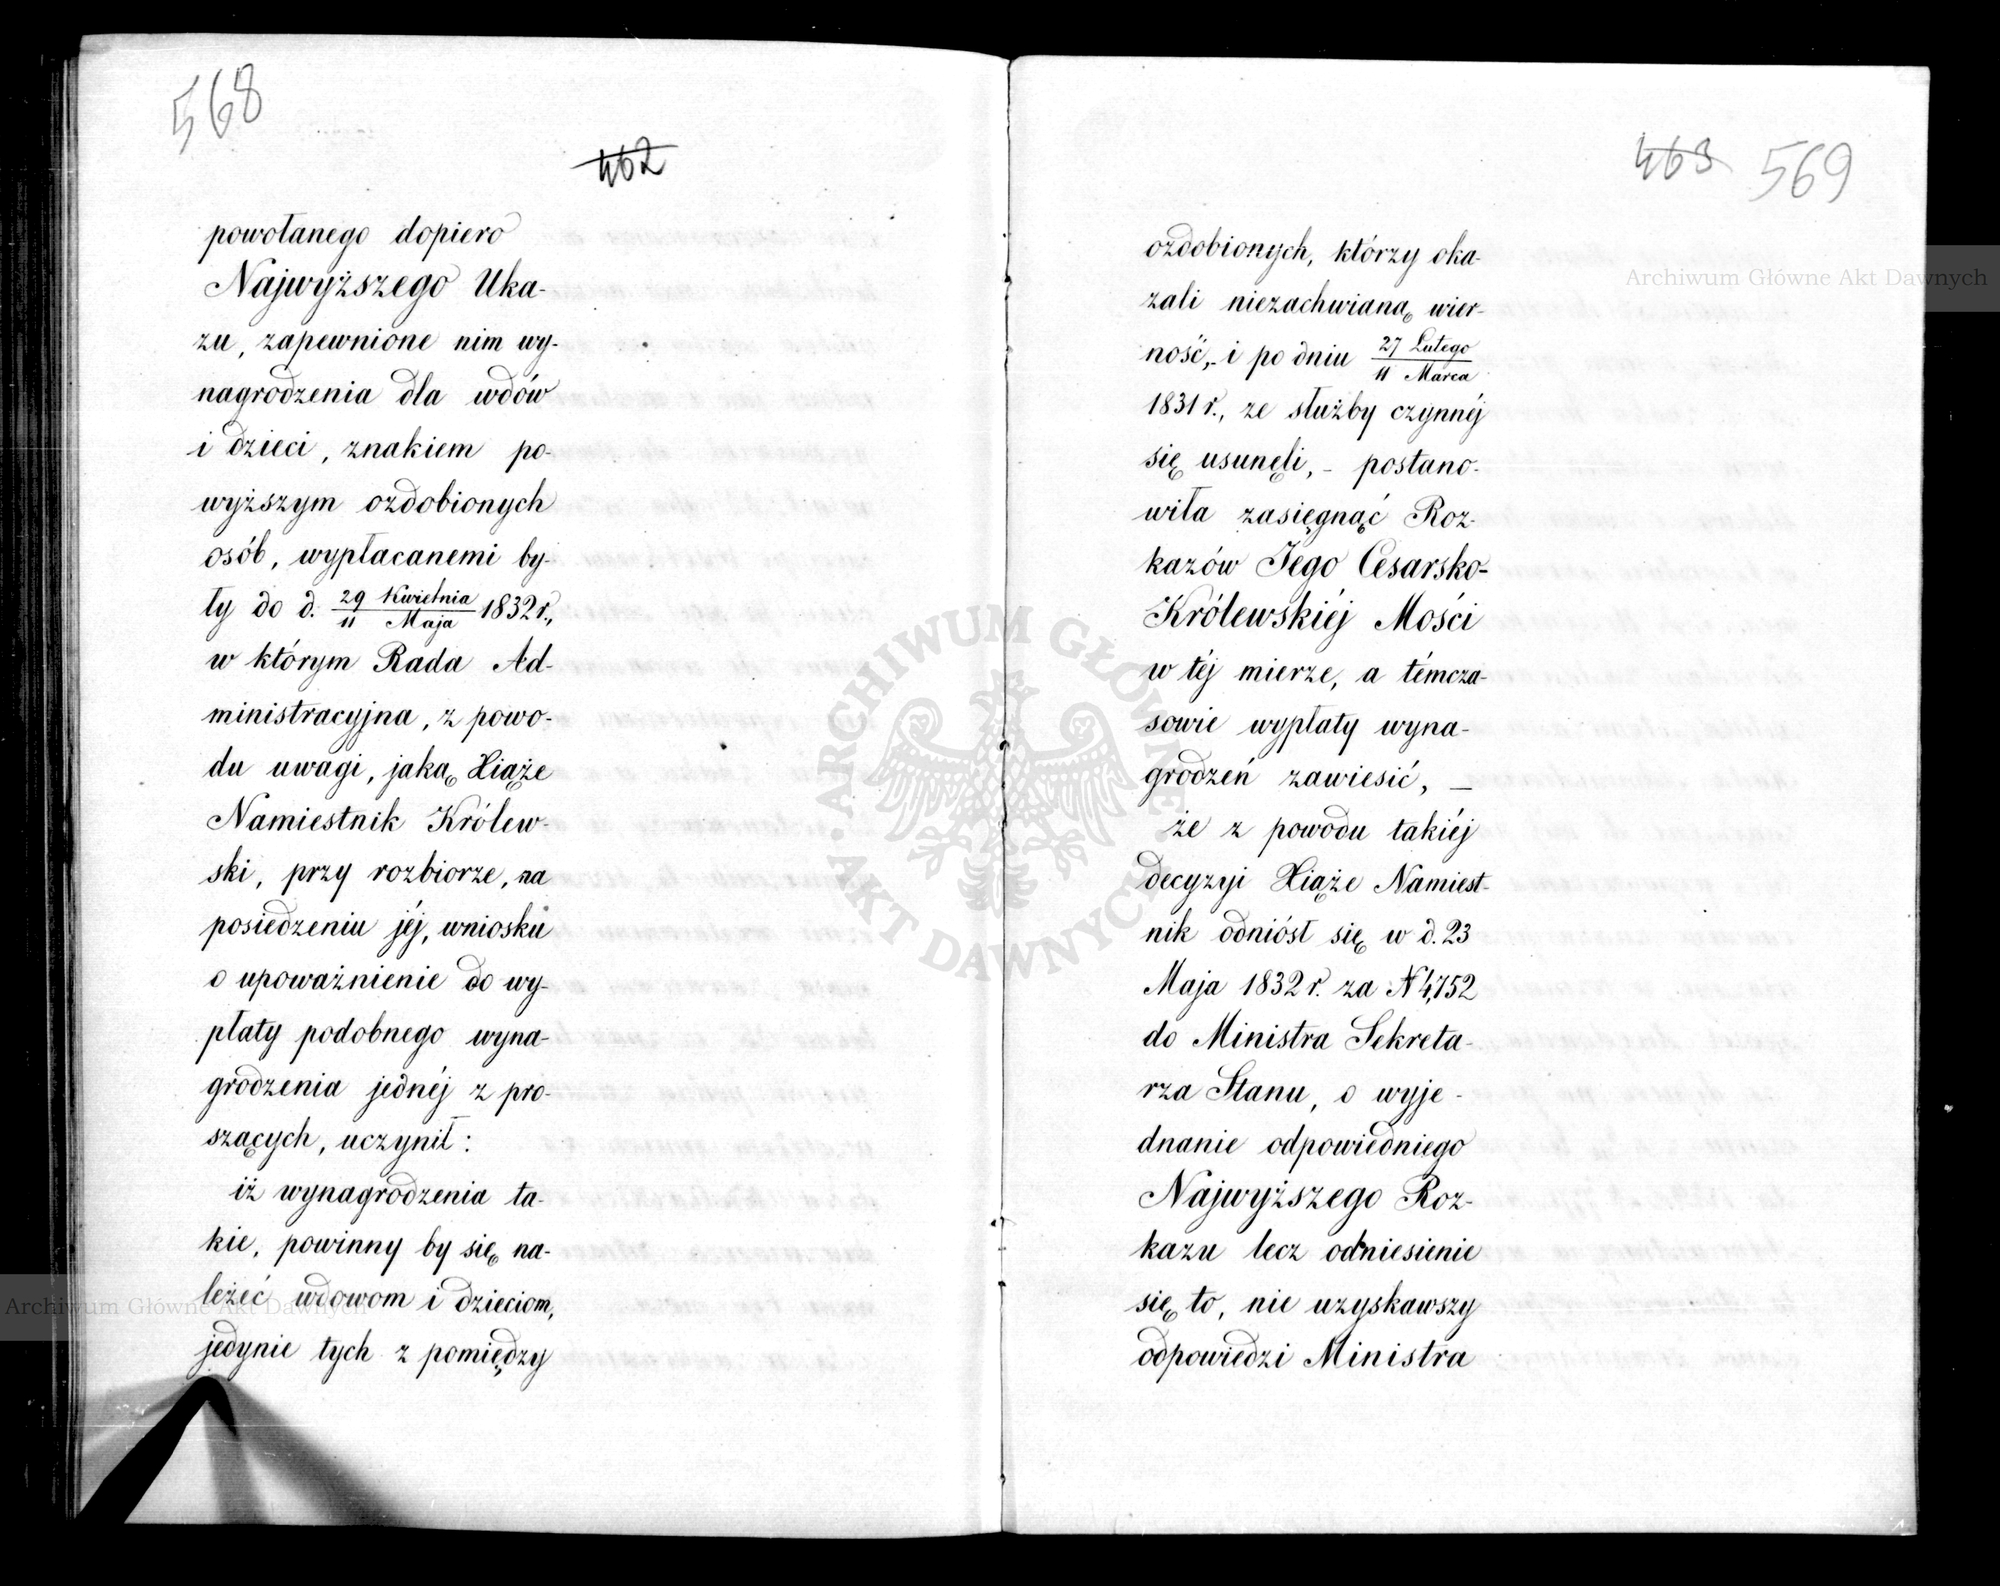 568
462
powołanego dopiero
Najwyższego Uka-
zu, zapewnione nim wy-
nagrodzenia dla wdów
i dzieci, znakiem po-
wyższym ozdobionych
osób, wypłacanemi by-
ły do d. 29 Kwietnia / 11 Maja 1832 r.,
w którym Rada Ad-
ministracyjna, z powo-
du uwagi, jaką Xiąże
Namiestnik Królew-
ski, przy rozbiorze, na
posiedzeniu jéj, wniosku
o upoważnienie do wy-
płaty podobnego wyna-
grodzenia jednéj z pro-
szących, uczynił:
iż wynagrodzenia ta-
kie, powinny by się na-
leżeć wdowom i dzieciom,
jedynie tych z pomiędzy
463 569
ozdobionych, którzy oka-
zali niezachwianą wier-
ność,- i po dniu 27 Lutego / 11 Marca
1831 r., ze służby czynnéj
się usunęli, - postano-
wiła zasięgnąć Roz-
kazów Jego Cesarsko-
Królewskiéj Mości
w téj mierze, a témcza-
sowie wypłaty wyna-
grodzeń zawiesić, —
że z powodu takiéj
decyzyi Xiąże Namiest-
nik odniósł się w d. 23
Maja 1832 r. za N 4,752
do Ministra Sekreta-
rza Stanu, o wyje-
dnanie odpowiedniego
Najwyższego Roz-
kazu lecz odniesienie
się to, nie uzyskawszy
odpowiedzi Ministra
Archiwum Główne Akt Dawnych
Archiwum Główne Akt Dawnych
ARCHIWUM GŁÓWNE AKT DAWNYCH